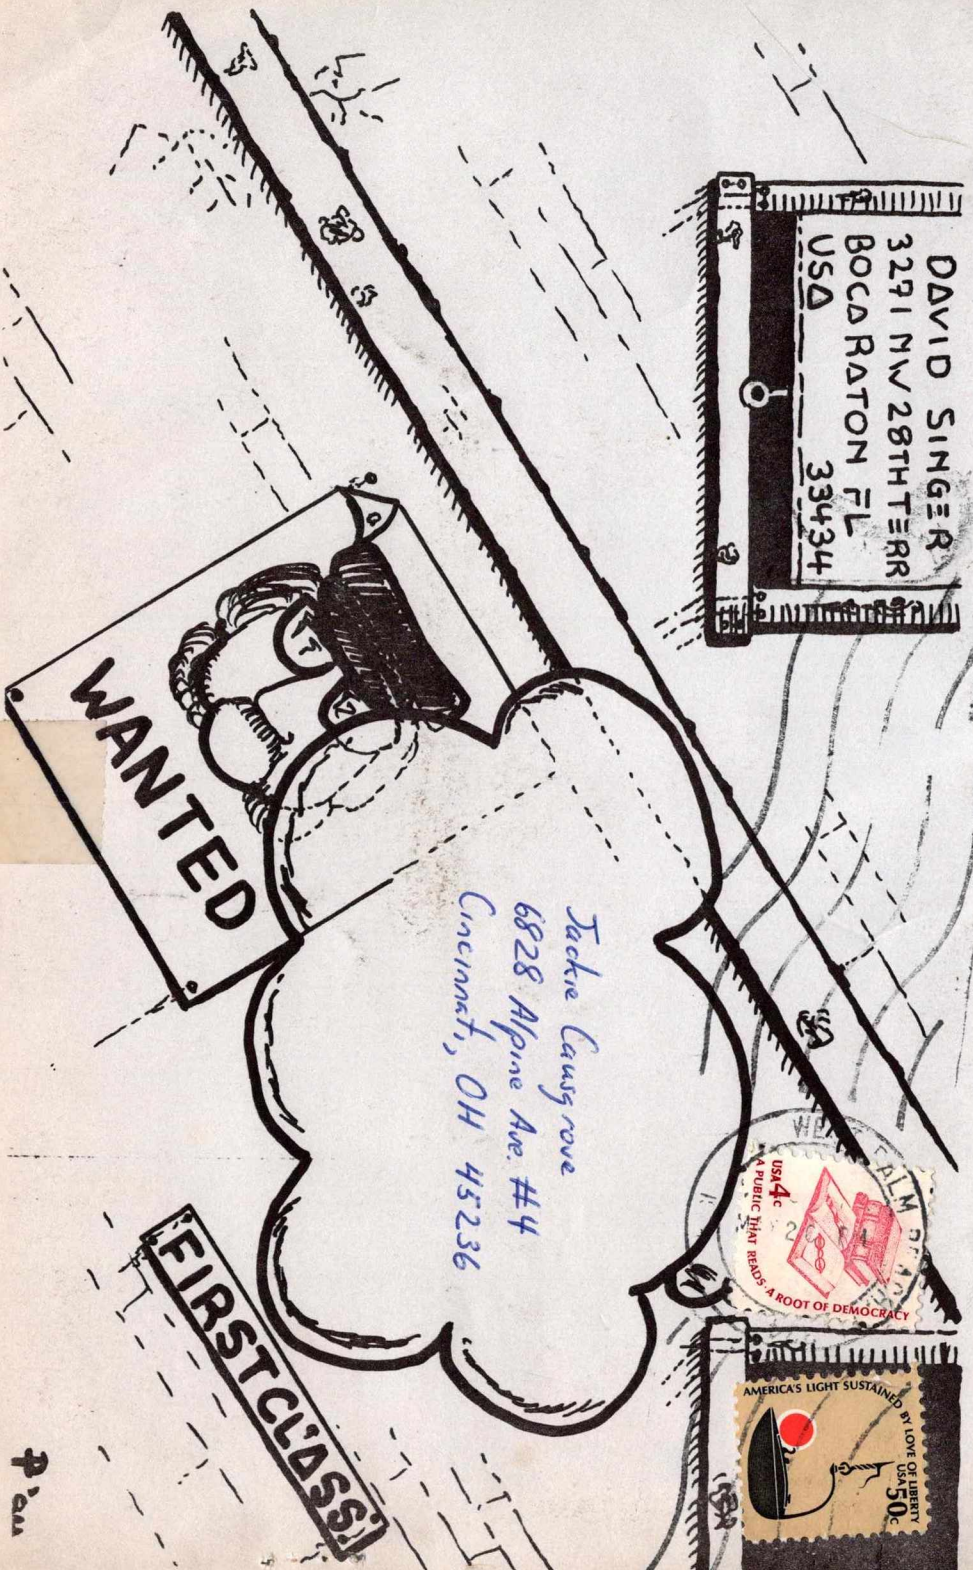 DAVID SINGER
3271 NW 28TH TERR
BOCA RATON FL
USA 33434
WANTED
Jackie Causgrove
6828 Alpine Ave. #4
Cincinnati, OH 45236
FIRST CLASS
USA 4c
A PUBLIC THAT READS · A ROOT OF DEMOCRACY
AMERICA'S LIGHT SUSTAINED BY LOVE OF LIBERTY
USA 50c